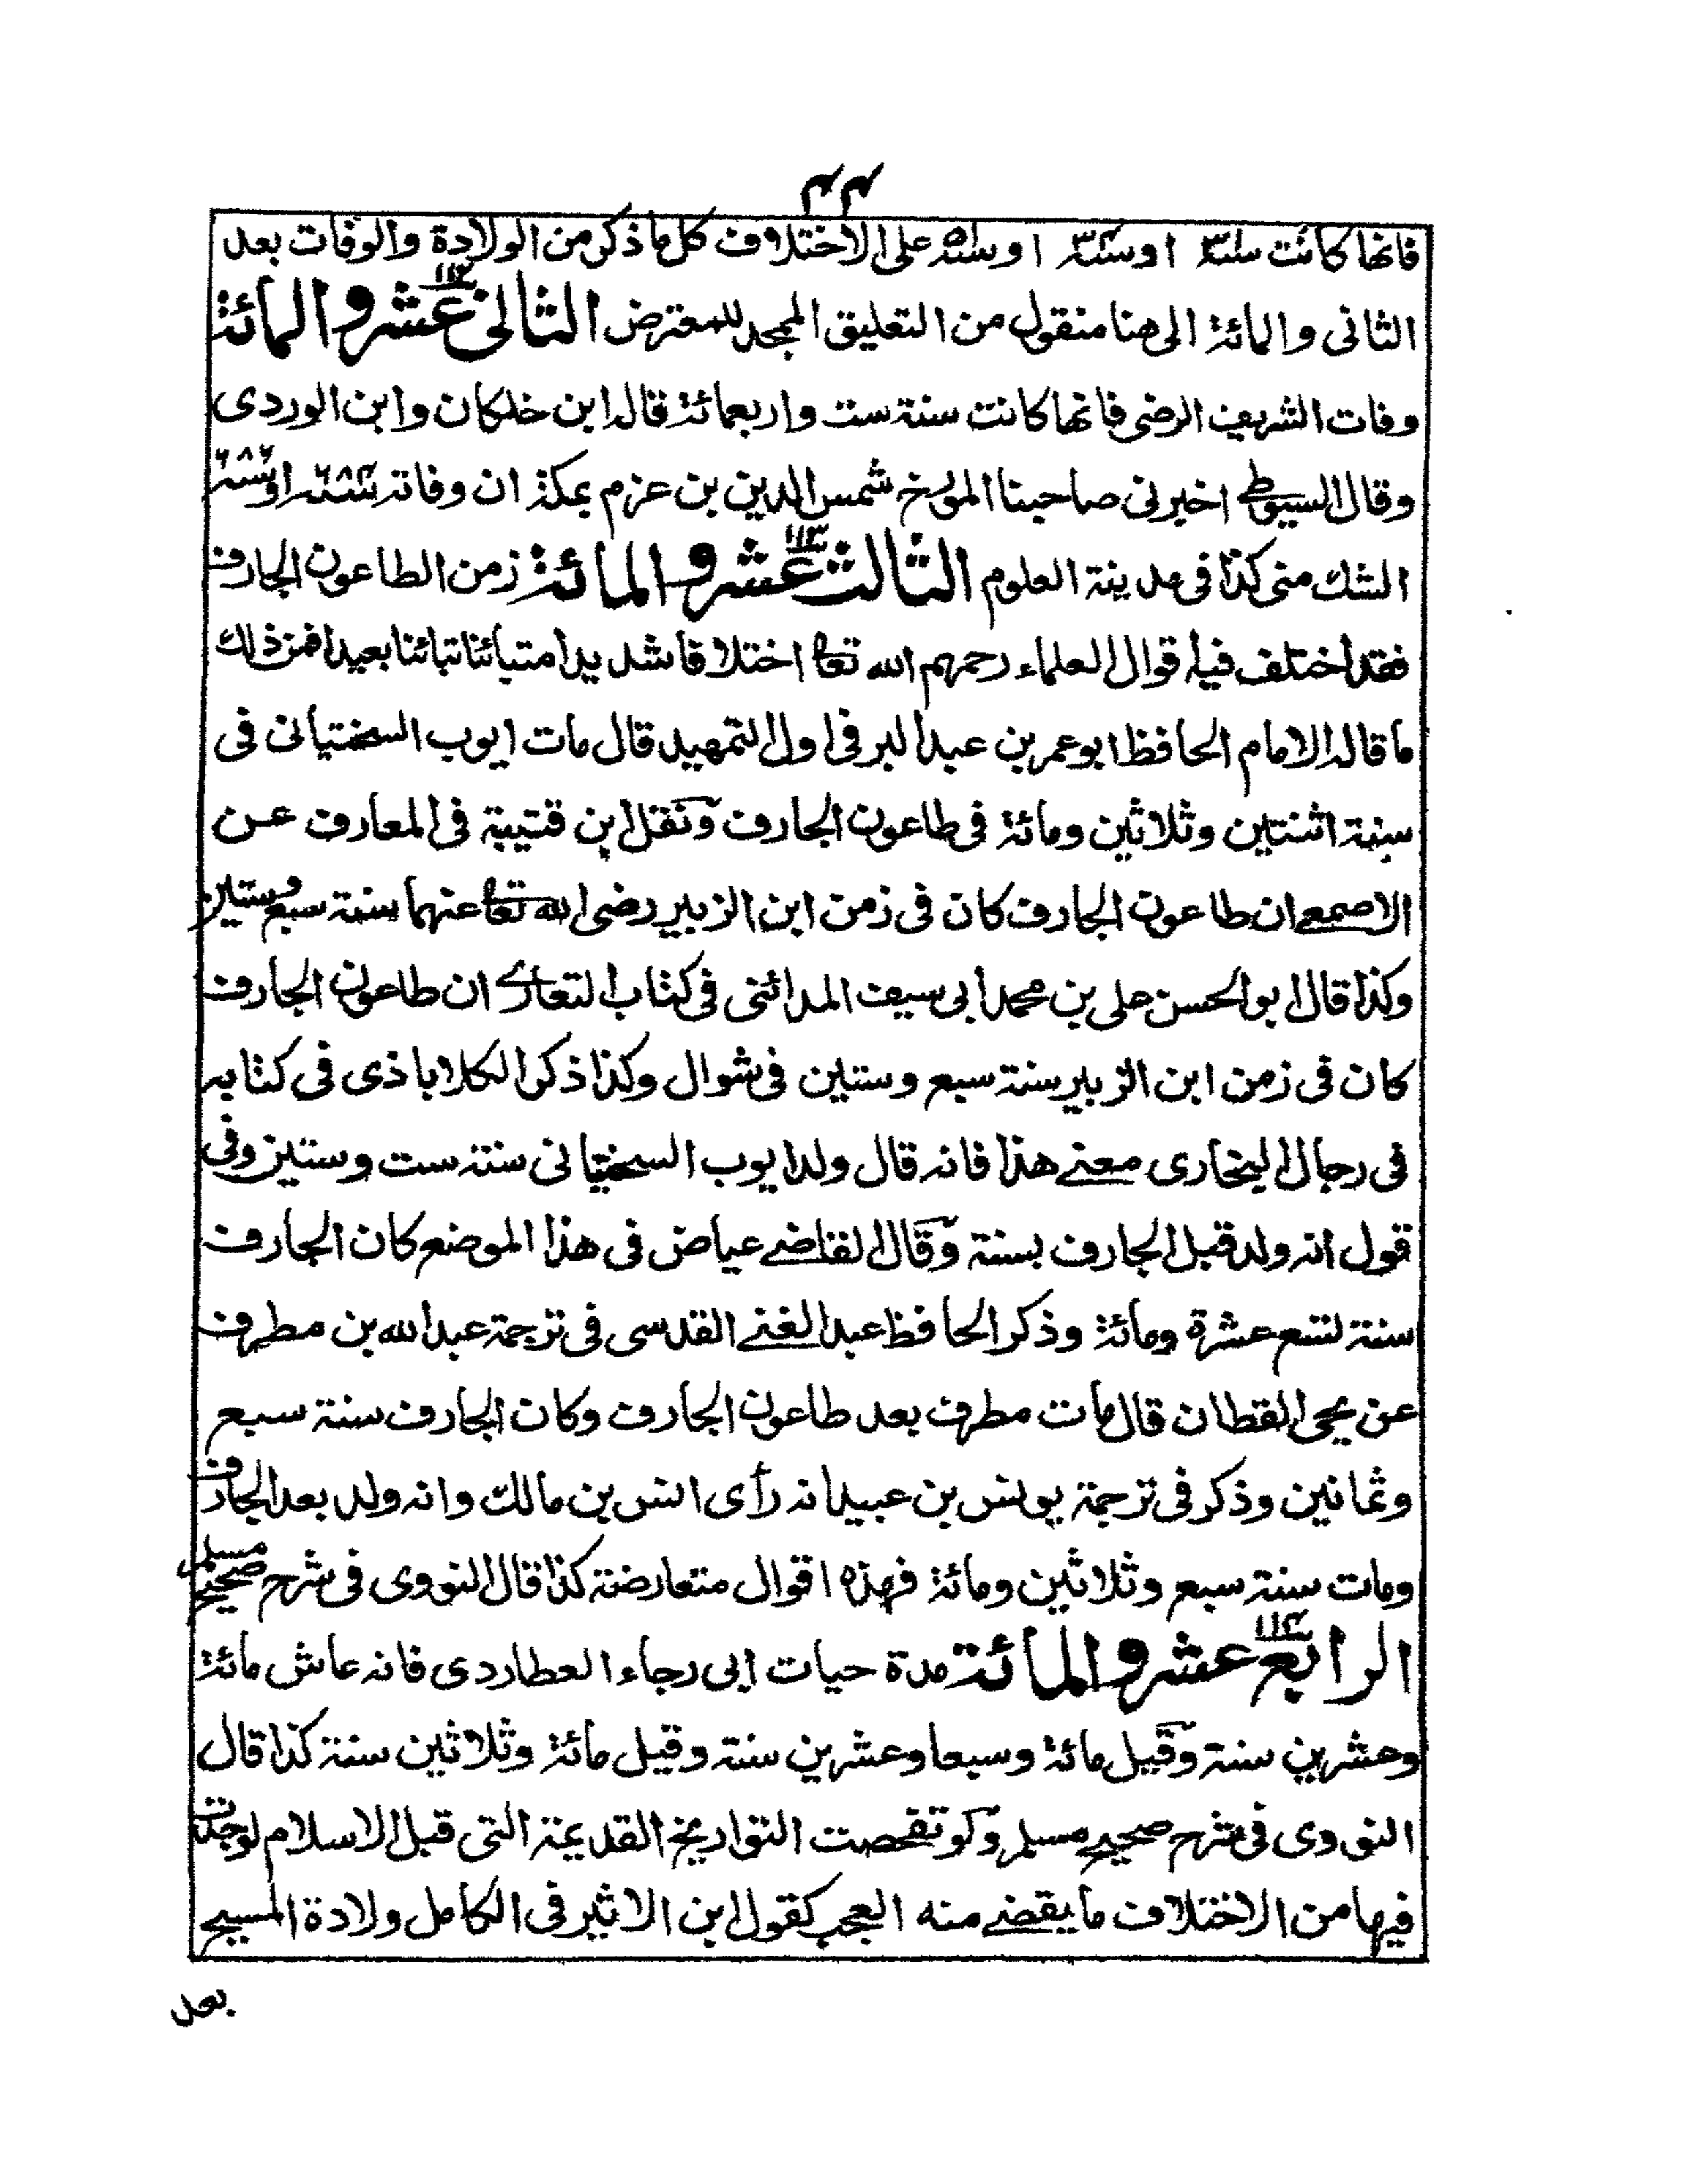 ۴۴
فانها كانت او او على الاختلاف كل ما ذكر من الولادة والوفات بعد
الثانى والمائة الى هنا منقول من التعليق الممجد للمعترض الثانى عشر والمائة ١١٢
وفات الشريف الرضى فانها كانت سنة ست واربعمائة قاله ابن خلكان وابن الوردى
وقال السيوطى اخبرنى صاحبنا المورخ شمس الدين بن عزم بمكة ان وفاته
الشك منى كذا فى مدينة العلوم الثالث عشر والمائة ١١٣ زمن الطاعون الجارف
فقد اختلف فيه اقوال العلماء رحمهم الله تعالى اختلافا شديدا متبائنا تبائنا بعيدا فمن ذلك
ما قاله الامام الحافظ ابو عمر بن عبد البر فى اول التمهيد قال مات ايوب السختيانى فى
سنة اثنتين وثلاثين ومائة فى طاعون الجارف ونقل ابن قتيبة فى المعارف عن
الاصمعى ان طاعون الجارف كان فى زمن ابن الزبير رضى الله تعالى عنهما سنة سبع وستين
وكذا قال ابو الحسن على بن محمد ابى سيف المدائنى فى كتاب التعازى ان طاعون الجارف
كان فى زمن ابن الزبير سنة سبع وستين فى شوال وكذا ذكر الكلاباذى فى كتابه
فى رجال البخارى معنى هذا فانه قال ولد ايوب السختيانى سنة ست وستين وفى
قول انه ولد قبل الجارف بسنة وقال القاضى عياض فى هذا الموضع كان الجارف
سنة تسع عشرة ومائة وذكر الحافظ عبد الغنى القدسى فى ترجمة عبد الله بن مطرف
عن يحيى القطان قال مات مطرف بعد طاعون الجارف وكان الجارف سنة سبع
وثمانين وذكر فى ترجمة يونس بن عبيد انه رأى انس بن مالك وانه ولد بعد الجارف
ومات سنة سبع وثلاثين ومائة فهذه اقوال متعارضة كذا قال النووى فى شرح صحيح مسلم
الرابع عشر والمائة ١١٤ مدة حيات ابى رجاء العطاردى فانه عاش مائة
وعشرين سنة وقيل مائة وسبعا وعشرين سنة وقيل مائة وثلاثين سنة كذا قال
النووى فى شرح صحيح مسلم ولو تفحصت التواريخ القديمة التى قبل الاسلام لوجدت
فيها من الاختلاف ما يقضى منه العجب كقول ابن الاثير فى الكامل ولادة المسيح
بعد